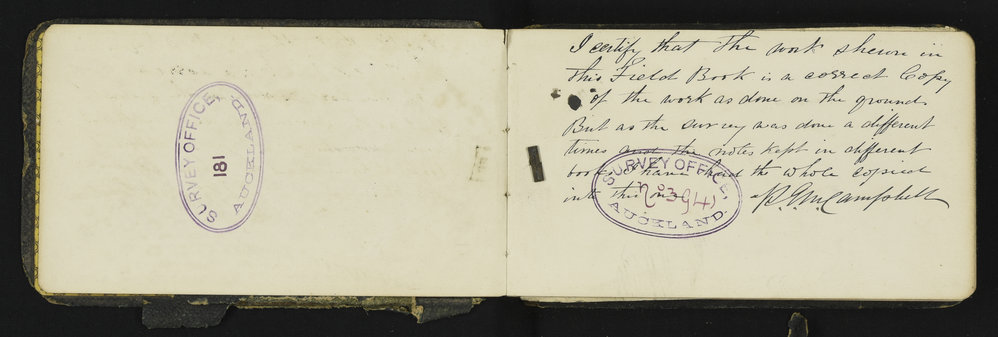 SURVEY OFFICE,
181
AUCKLAND.
I certify that the work shewn in
this Field Book is a correct Copy
of the work as done on the ground
But as the survey was done a different
times and the notes kept in different
books I have had the whole copied
into this one
SURVEY OFFICE,
No 394
AUCKLAND.
Campbell